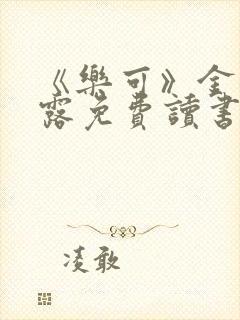 《樂可》金
露免費讀書
凌敢